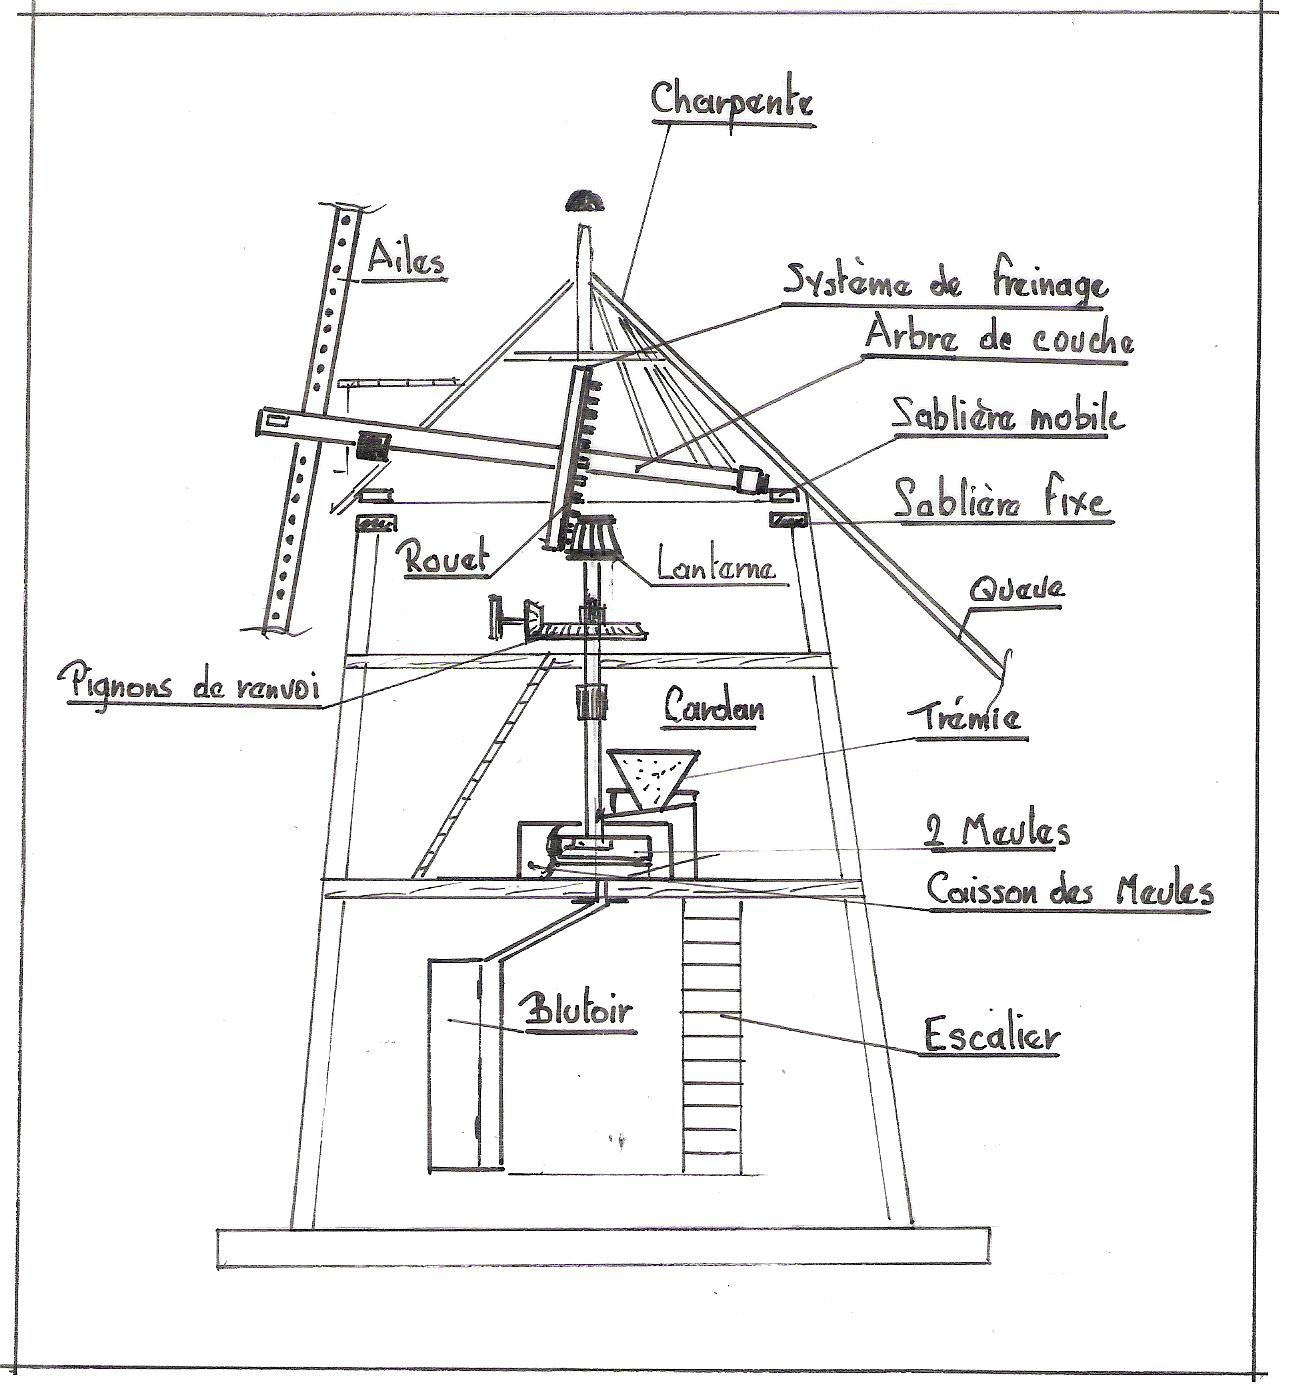 Charpente
Ailes
Système de freinage
Arbre de couche
Sablière mobile
Sablière fixe
Rouet
Lanterne
Queue
Pignons de renvoi
Cardan
Trémie
2 Meules
Caisson des Meules
Blutoir
Escalier